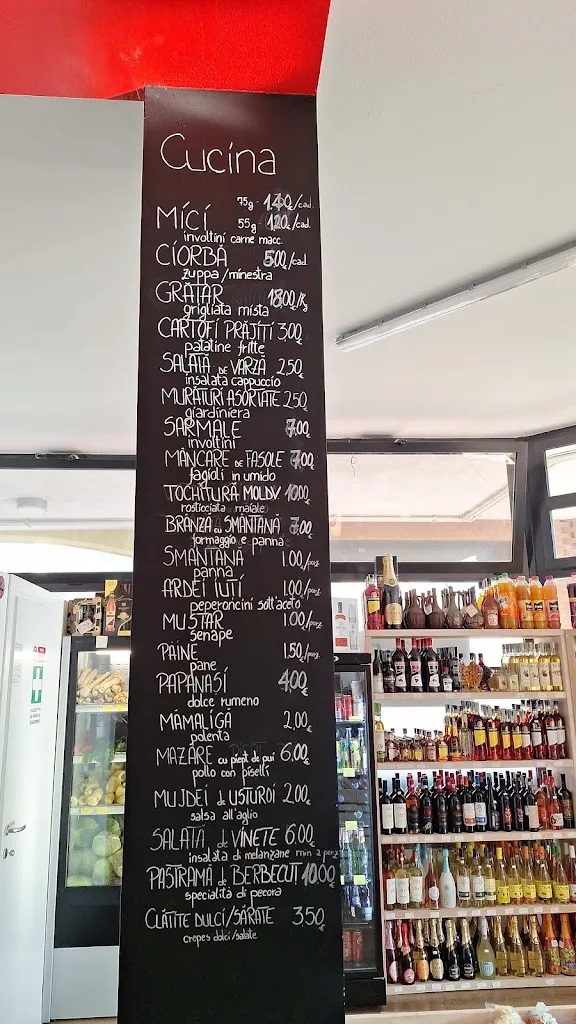 Cucina
75g - 1.40€/cad.
MÍCÍ 55g 1,20€/cad.
involtini carne macc.
CIORBĂ 5.00/cad.
zuppa/minestra
GRĂTAR 18.00/Kg
grigliata mista
CARTOFÍ PRĂJÍTÍ 3,00€
patatine fritte
SALATĂ DE VARZĂ 2,50€
insalata cappuccio
MURĂTURÍ ASORTATE 2,50€
giardiniera
SARMALE 7.00€
involtini
MÂNCARE DE FASOLE 7,00€
fagioli in umido
TOCHITURĂ MOLDV. 10,00€
rosticciata maiale
BRÂNZĂ cu SMÂNTÂNĂ 7.00€
formaggio e panna
SMÂNTÂNĂ 1.00/porz.
panna
ARDEI IUTÍ 1.00/porz.
peperoncini sott'aceto
MUȘTAR 1.00/porz.
senape
PÂINE 1.50€/porz.
pane
PAPANAȘÍ 4,00€
dolce rumeno
MĂMĂLÍGĂ 2,00€
polenta
MAZĂRE cu piept de pui 6.00€
pollo con piselli
MUJDEI de USTUROI 2,00€
salsa all'aglio
SALATĂ de VÍNETE 6.00€
insalata di melanzane
PASTRAMĂ de BERBECUȚ 10,00€
specialità di pecora
CLĂTITE DULCÍ/SĂRATE 3,50€
crepes dolci/salate